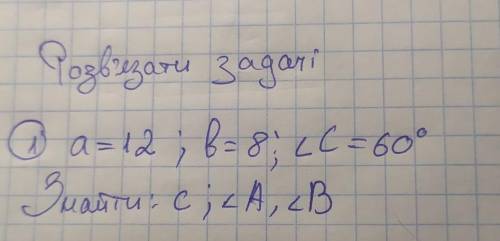 Розв'язати задачі
1) a=12 ; b=8 ; ∠C=60°
Знайти: c ; ∠A, ∠B